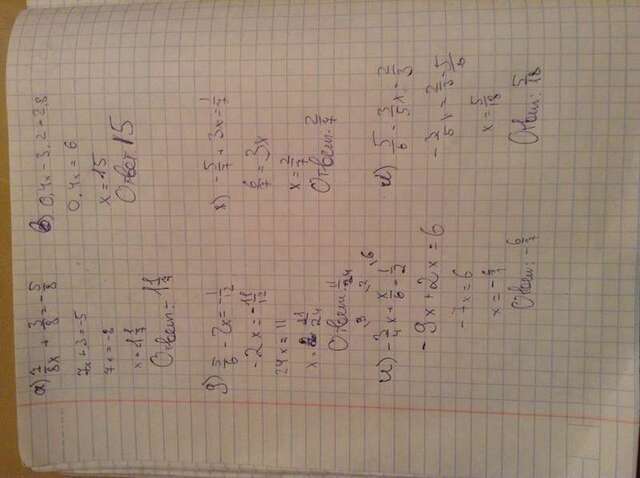 а) 7/8x + 3/8 = -5/8
7x+3=-5
7x=-8
x=-1 1/7
Ответ: -1 1/7
в) 0,4x-3,2=2,8
0,4x=6
x=15
Ответ 15
д) 5/6 - 2x = -1/12
-2x = -11/12
24x=11
x = 11/24
Ответ: 11/24
ж) -5/7 + 3x = 1/7
6/7 = 3x
x = 2/7
Ответ: 2/7
и) -3/4 x + x/6 = 1/2
-9x+2x=6
-7x=6
x = -6/7
Ответ: -6/7
5/6 - 3/5 x = 2/3
-3/5 x = 2/3 - 5/6
x = 5/18
Ответ: 5/18